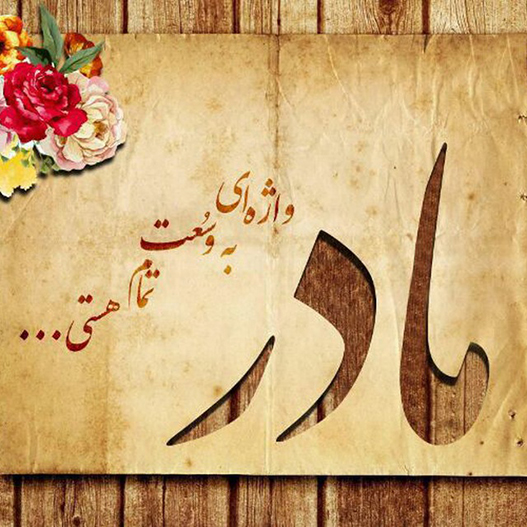 مادر
واژه‌ای
به وسُعت
تمام
هستی...